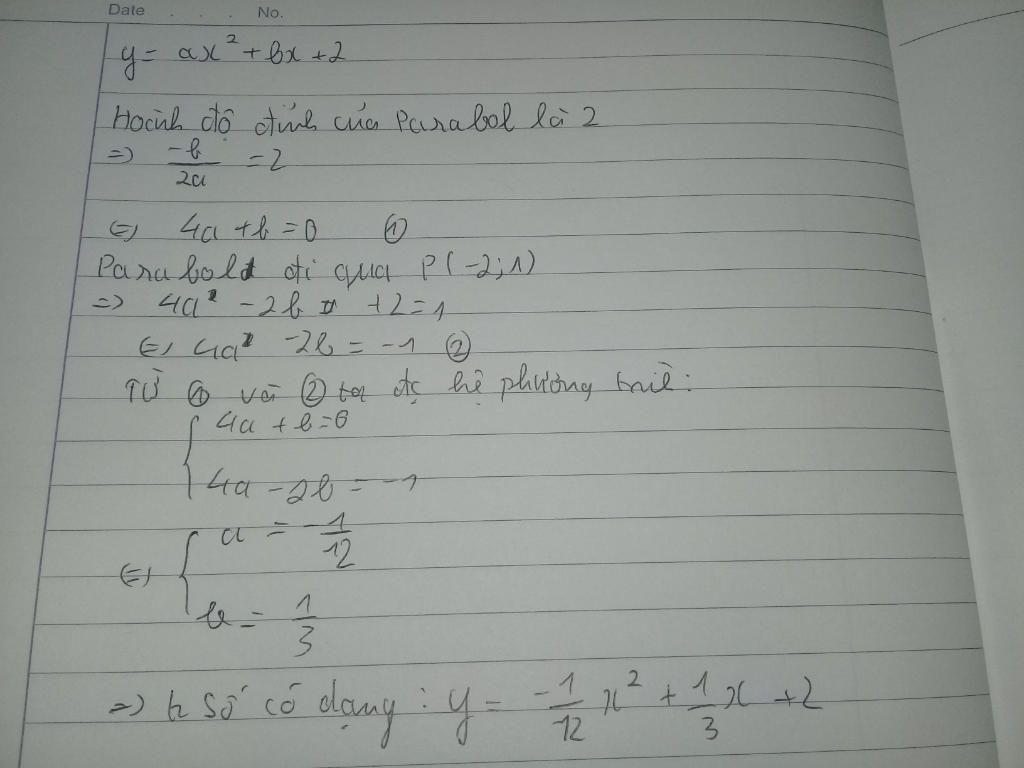 Date . . . No.
y = ax² + bx + 2
Hoành độ đỉnh của Parabol là 2
=> -b/2a = 2
<=> 4a + b = 0 ①
Parabol đi qua P(-2;1)
=> 4a - 2b + 2 = 1
<=> 4a - 2b = -1 ②
Từ ① và ② ta đc hệ phương trình:
{ 4a + b = 0
4a - 2b = -1
<=> { a = -1/12
b = 1/3
=> h số có dạng : y = -1/12 x² + 1/3 x + 2